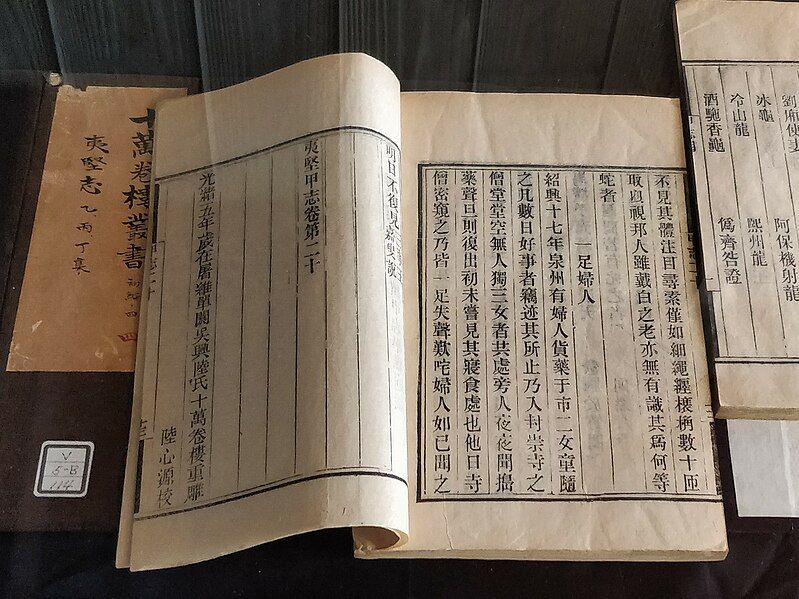 劉廂使妻　阿保機射龍
冰龜　熙州龍
冷山龍　爲齊咎證
酒駞香龜
不見其體注目尋索僅如細繩纏柄數十匝
取回視邦人雖戴白之老亦無有識其爲何等
蛇者
一足婦人
紹興十七年泉州有婦人貨藥于市二女童隨
之凡數日好事者竊迹其所止乃入封崇寺之
僧堂堂空無人獨三女者共處旁人夜夜聞搗
藥聲旦則復出初未嘗見其寢食處也他日寺
僧密窺之乃皆一足失聲歎咤婦人如已聞之
明日不復見
夷堅甲志卷第二十
光緒五年歲在屠維單閼吳興陸氏十萬卷樓重雕
陸心源校
十萬卷樓叢書
夷堅志 乙丙丁集
四
V
5-B
114